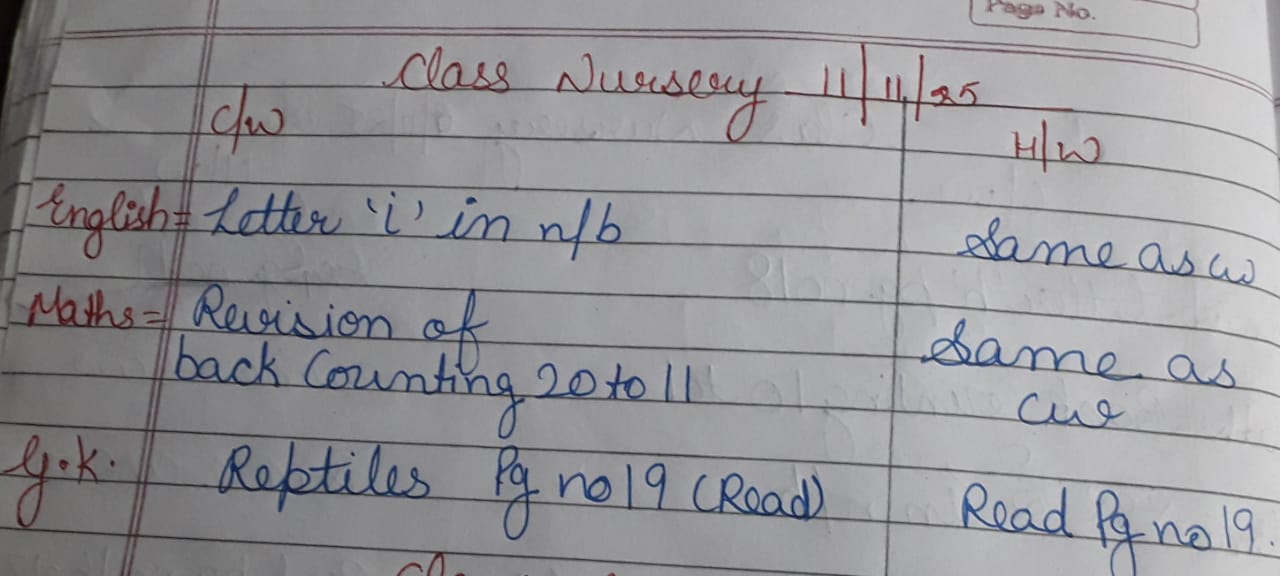 Page No.
Class Nursery 11/11/25
C/W H/W
English= Letter 'i' in n/b Same as cw
Maths= Revision of Same as
back Counting 20 to 11 cw
G.K. Reptiles Pg no 19 (Read) Read Pg no 19.